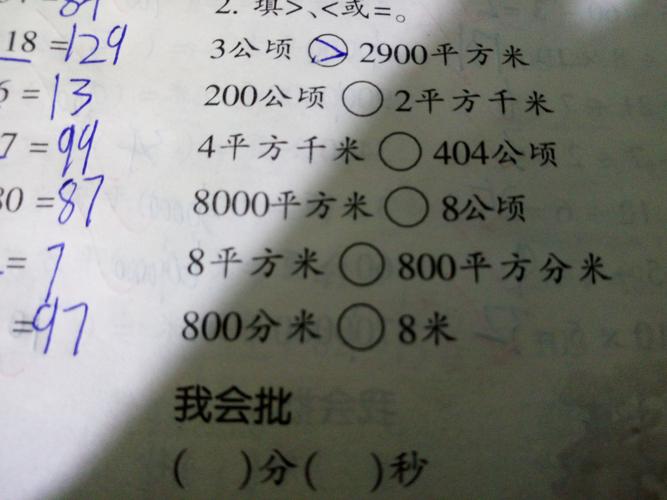 2. 填>、<或=。
18 =129
3公顷 > 2900平方米
=13
200公顷 ○ 2平方千米
7 =99
4平方千米 ○ 404公顷
80 =87
8000平方米 ○ 8公顷
= 7
8平方米 ○ 800平方分米
=97
800分米 ○ 8米
我会批
( )分( )秒